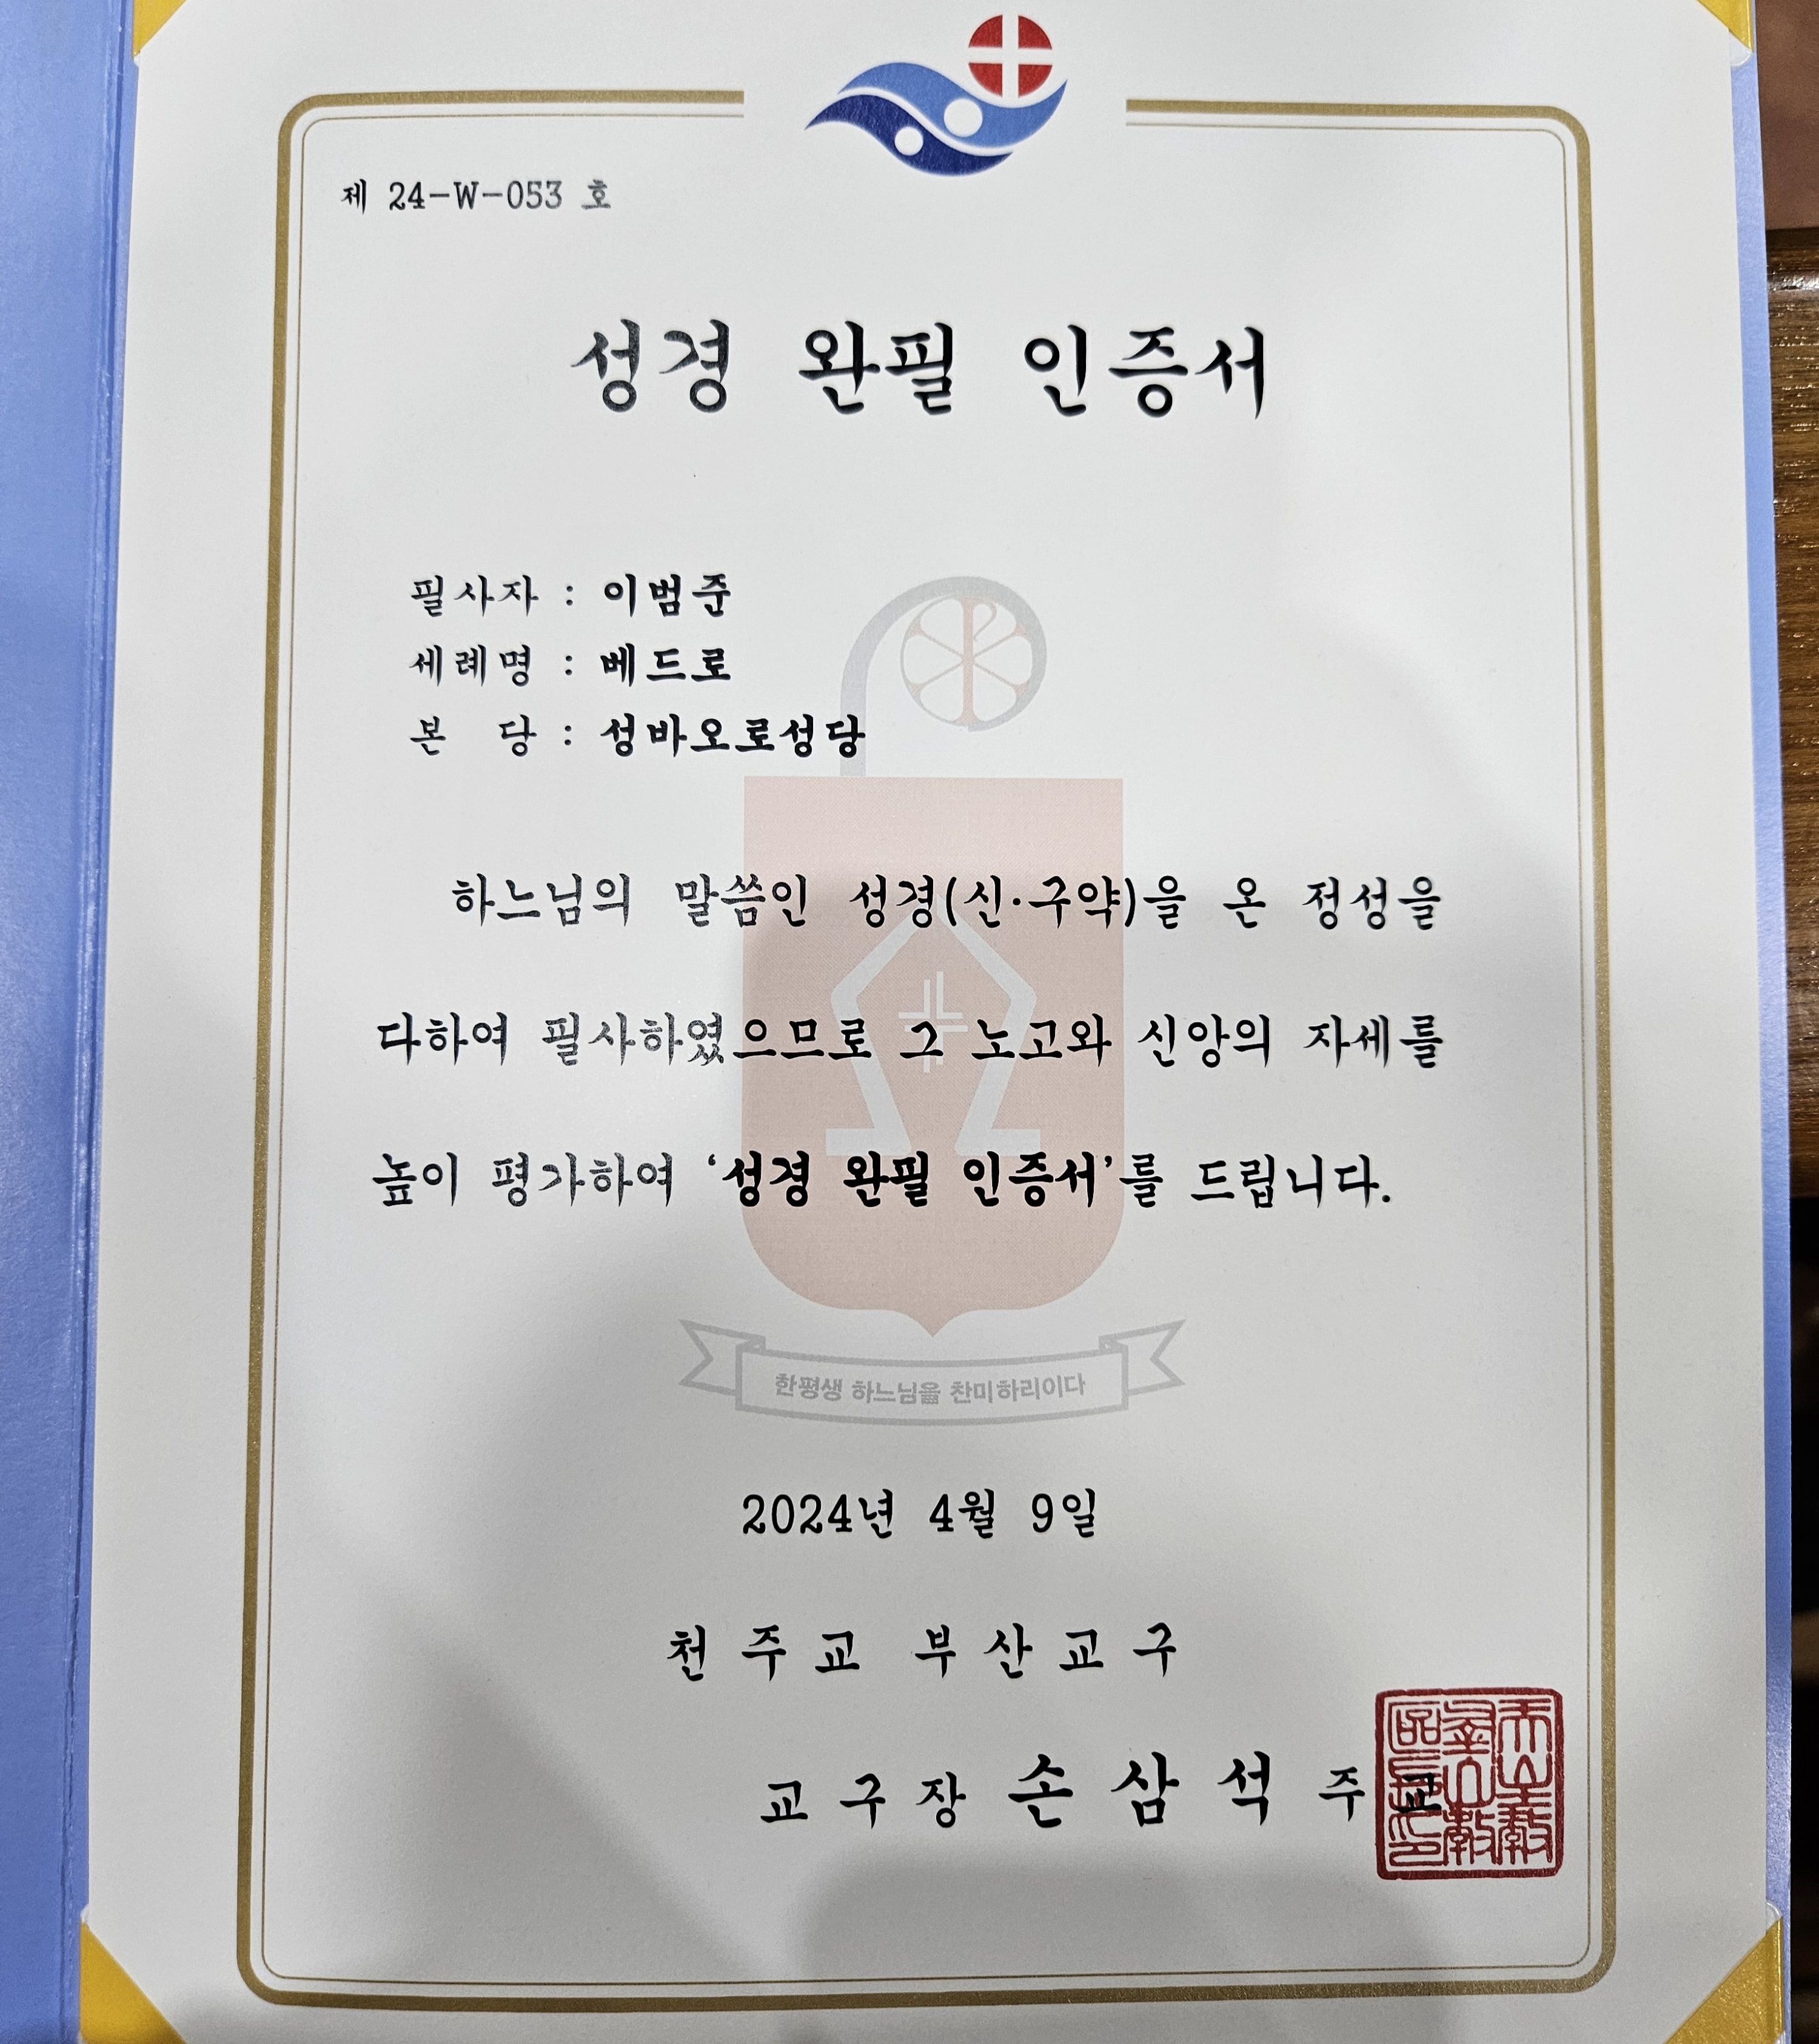 제 24-W-053 호
성경 완필 인증서
필사자 : 이범준
세례명 : 베드로
본 당 : 성바오로성당
하느님의 말씀인 성경(신·구약)을 온 정성을
다하여 필사하였으므로 그 노고와 신앙의 자세를
높이 평가하여 ‘성경 완필 인증서’를 드립니다.
한평생 하느님을 찬미하리이다
2024년 4월 9일
천주교 부산교구
교구장 손삼석 주교